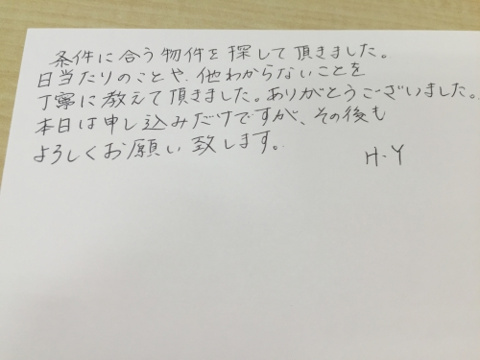 条件に合う物件を探して頂きました。
日当たりのことや、他わからないことを
丁寧に教えて頂きました。ありがとうございました。
本日は申し込みだけですが、その後も
よろしくお願い致します。
H.Y